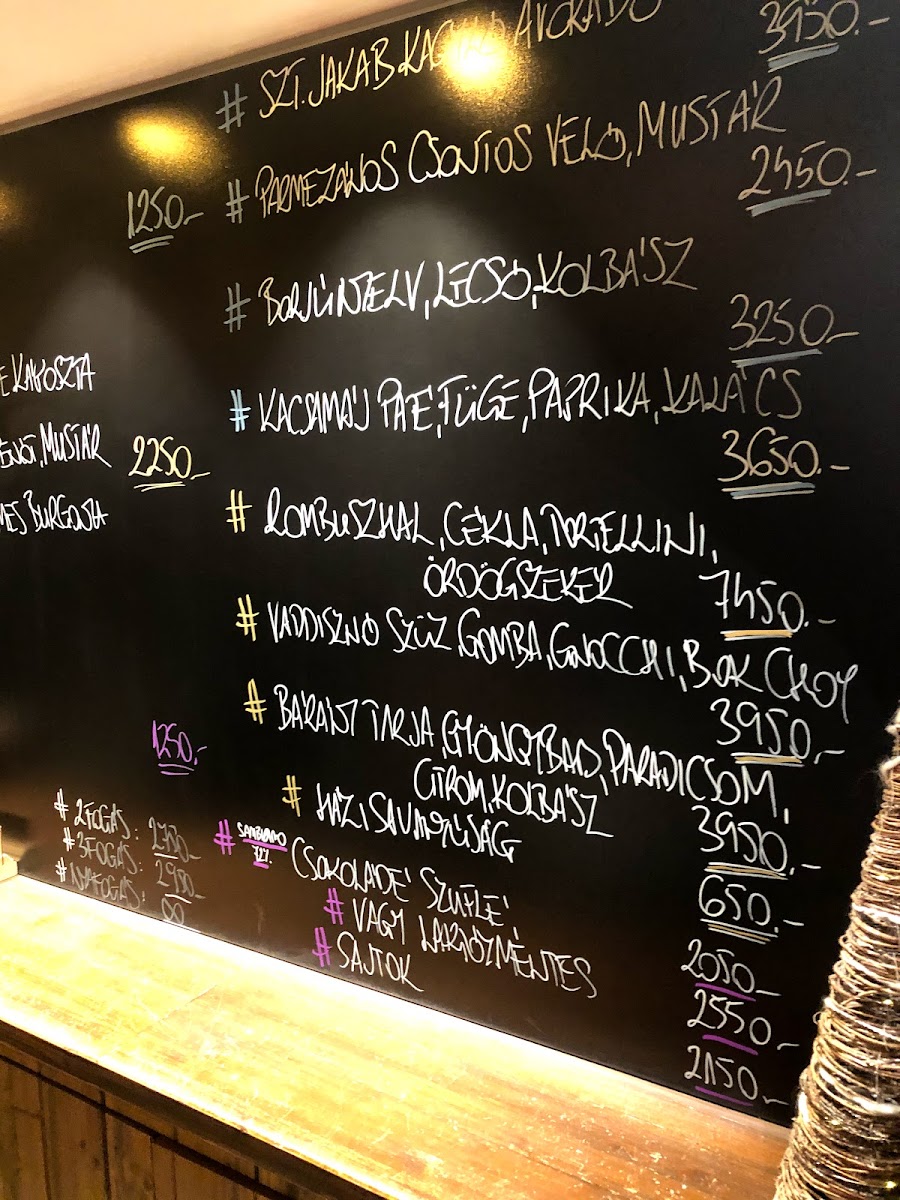 # SZT. JAKAB KAGYLÓ AVOKÁDÓ
3950.-
# PARMEZÁNOS CSONTOS VELŐ, MUSTÁR
2450.-
# BORJÚNYELV, LECSÓ, KOLBÁSZ
3250.-
# KACSAMÁJ PATÉ, FÜGE, PAPRIKA, KALÁCS
3650.-
# ROMBUSZHAL, CÉKLA, TORTELLINI,
ÖRDÖGSZEKÉR
7450.-
# VADDISZNÓ SZŰZ, GOMBA, GNOCCHI, BOK CHOY
3950.-
# BÁRÁNY TARJA, GYÖNGYBAB, PARADICSOM,
CITROM, KOLBÁSZ
3950.-
# HÁZI SAVANYÚSÁG
650.-
# CSOKOLÁDÉ SZUFLÉ
2050.-
# VAGY LAKTÓZMENTES
2550.-
# SAJTOK
2150.-
1250.-
KÁPOSZTA
MUSTÁR
2250.-
BURGONYA
1250.-
# 2 FOGÁS:
# 3 FOGÁS:
# NYAFOGÁS: